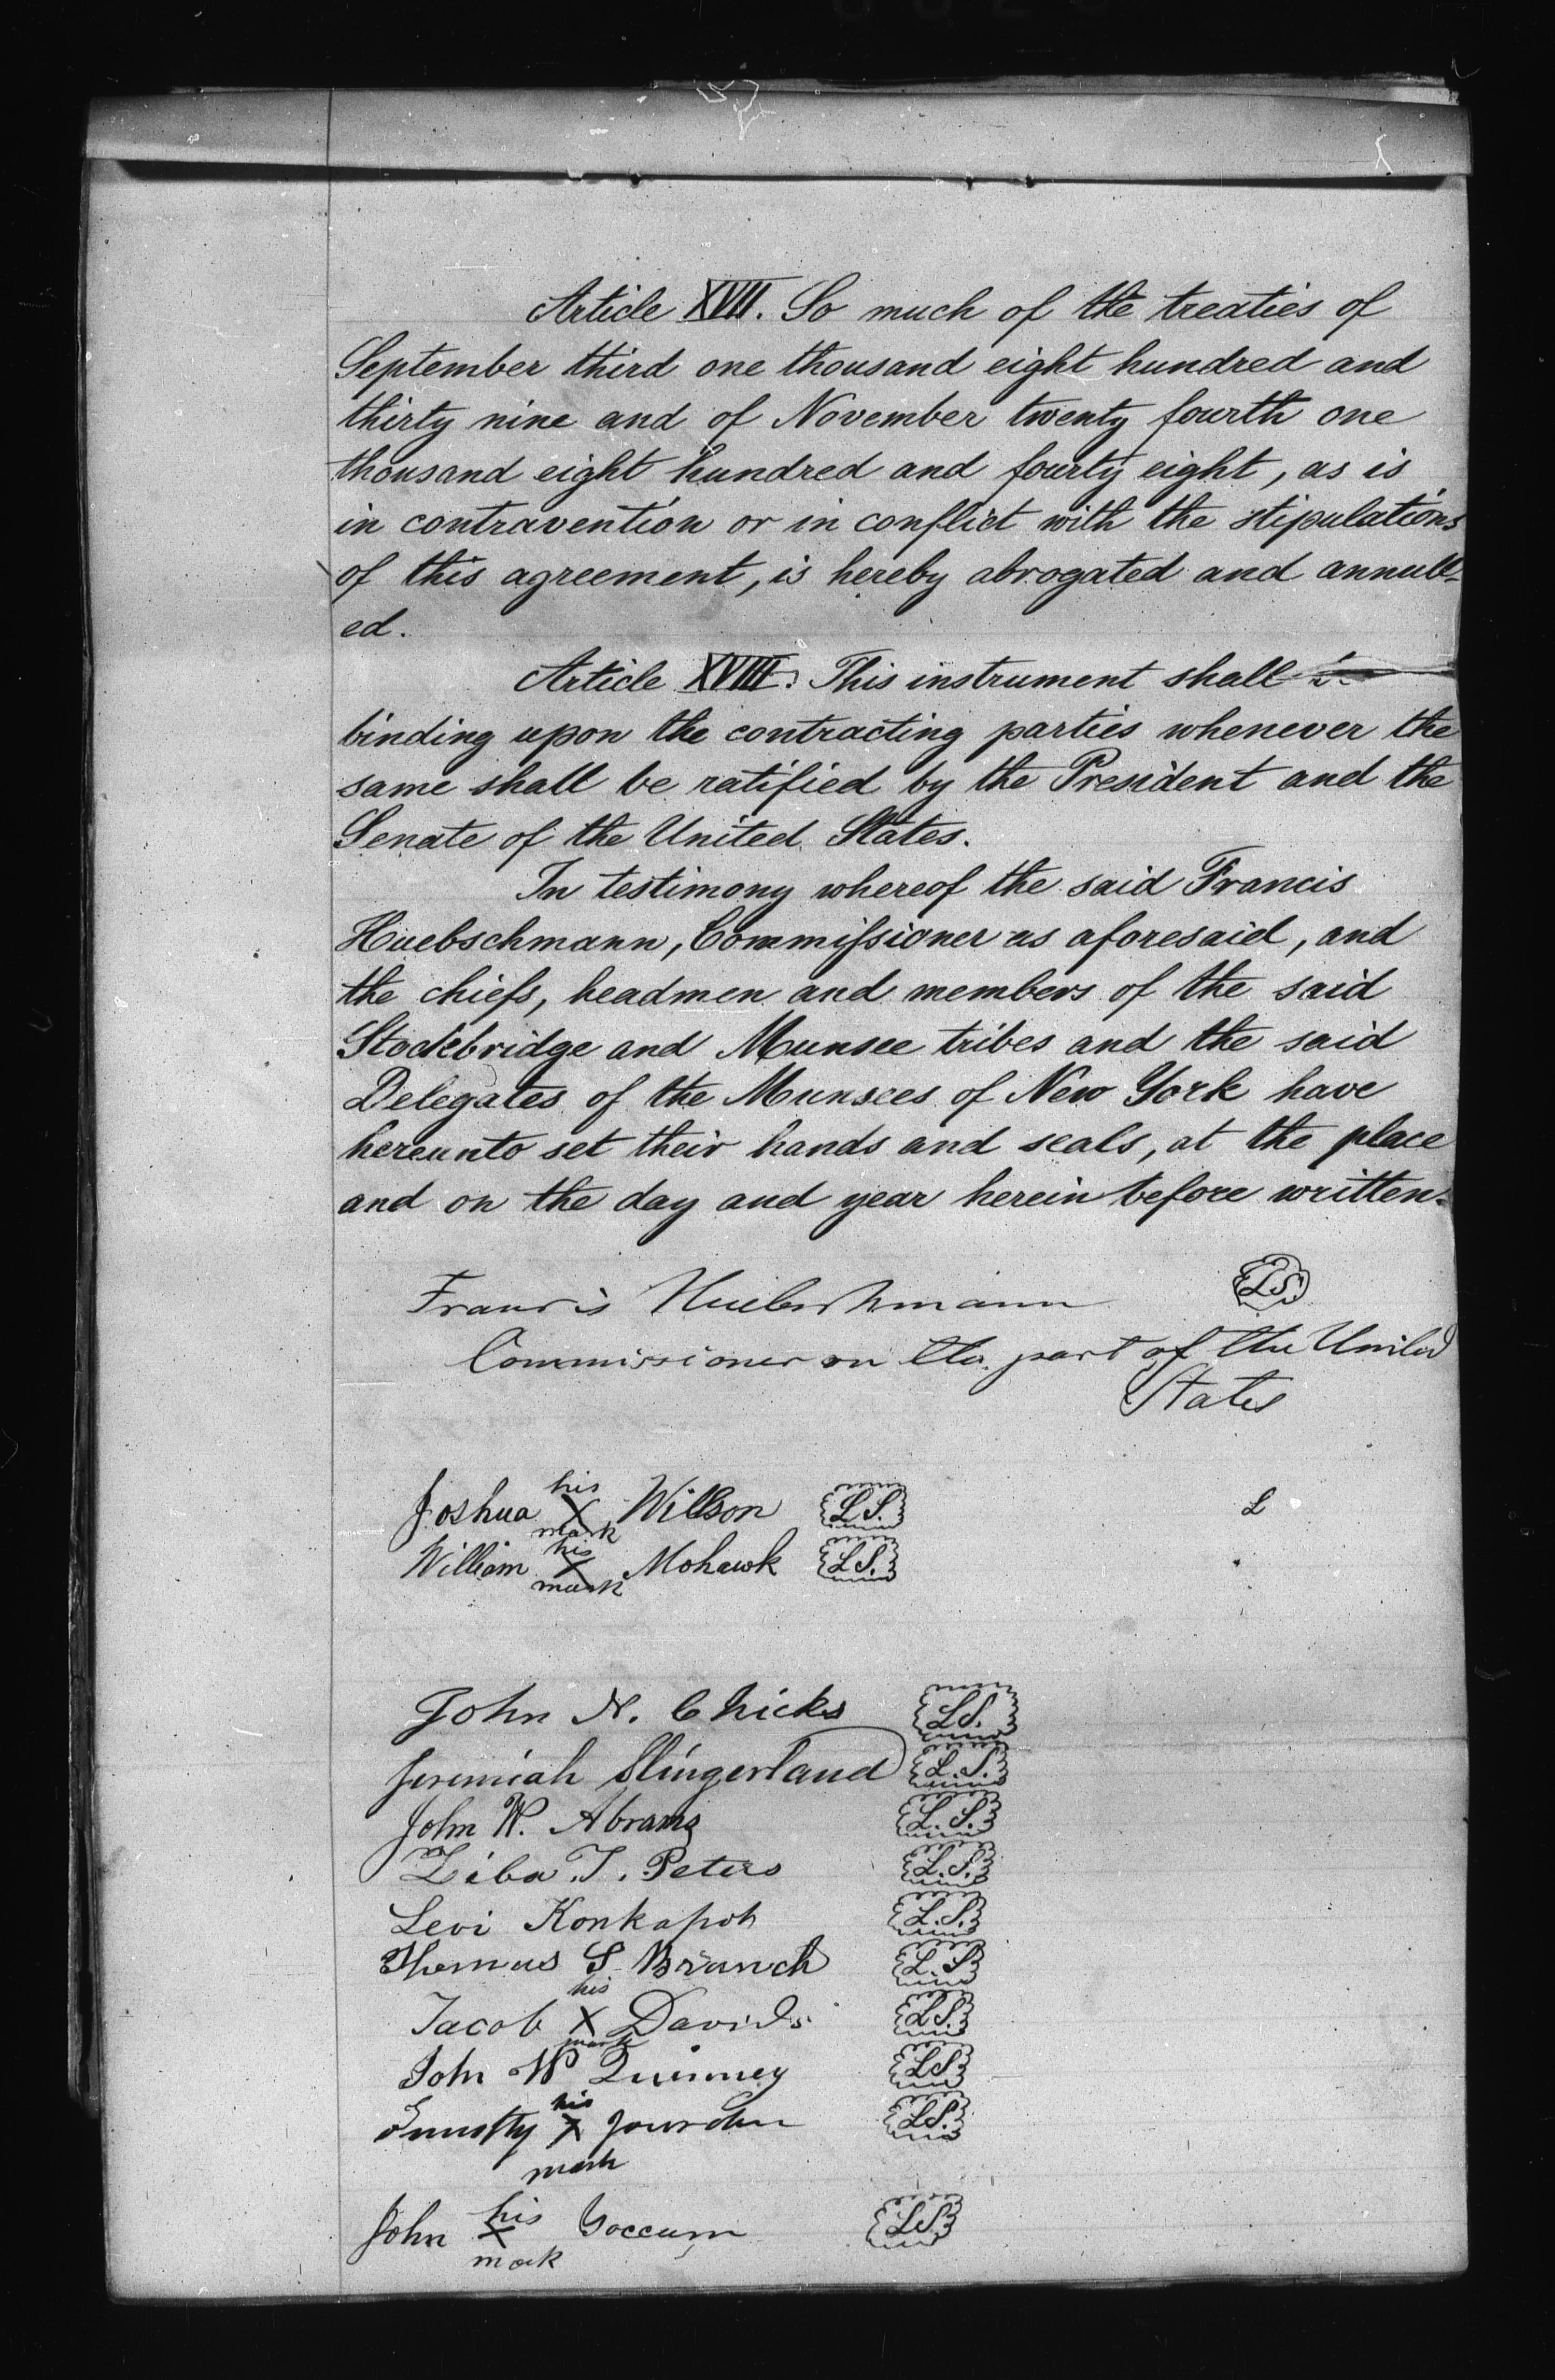 Article XVII. So much of the treaties of
September third one thousand eight hundred and
thirty nine and of November twenty fourth one
thousand eight hundred and fourty eight, as is
in contravention or in conflict with the stipulations
of this agreement, is hereby abrogated and annull-
ed.
Article XVIII. This instrument shall
binding upon the contracting parties whenever the
same shall be ratified by the President and the
Senate of the United States.
In testimony whereof the said Francis
Huebschmann, Commissioner as aforesaid, and
the chiefs, headmen and members of the said
Stockbridge and Munsee tribes and the said
Delegates of the Munsees of New York have
hereunto set their hands and seals, at the place
and on the day and year herein before written.
Francis Huebschmann L.S.
Commissioner on the part of the United
States
his
Joshua X Willson L.S.
mark
his
William X Mohawk L.S.
mark
L
John N. Chicks L.S.
Jeremiah Slingerland L.S.
John W. Abrams L.S.
Ziba T. Peters L.S.
Levi Konkapot L.S.
Thomas S Branch L.S
his
Jacob X Davids L.S.
mark
John W Quinney L.S
his
Timothy X Jourdan L.S.
mark
his
John X Yoccum L.S.
mark